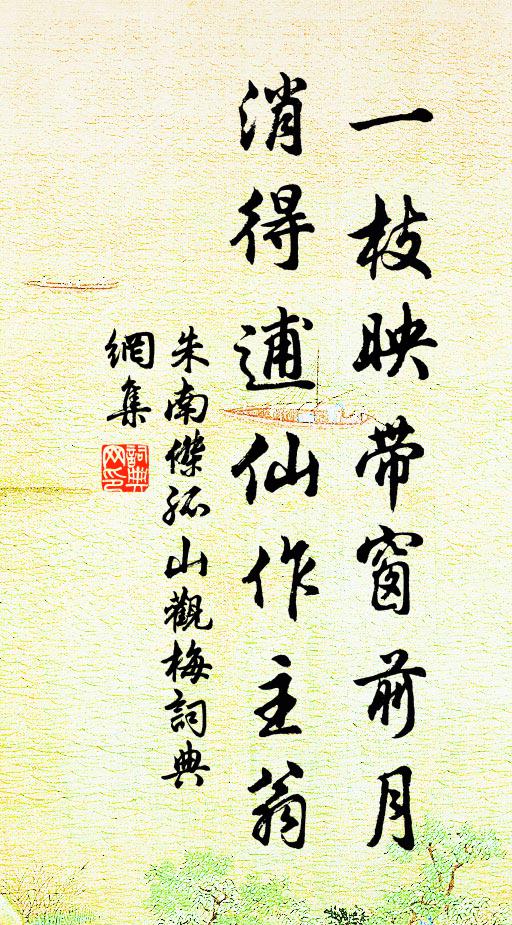 一枝映带窗前月
消得逋仙作主翁
朱南傑孤山觀梅詞典
網集
詞典
网印